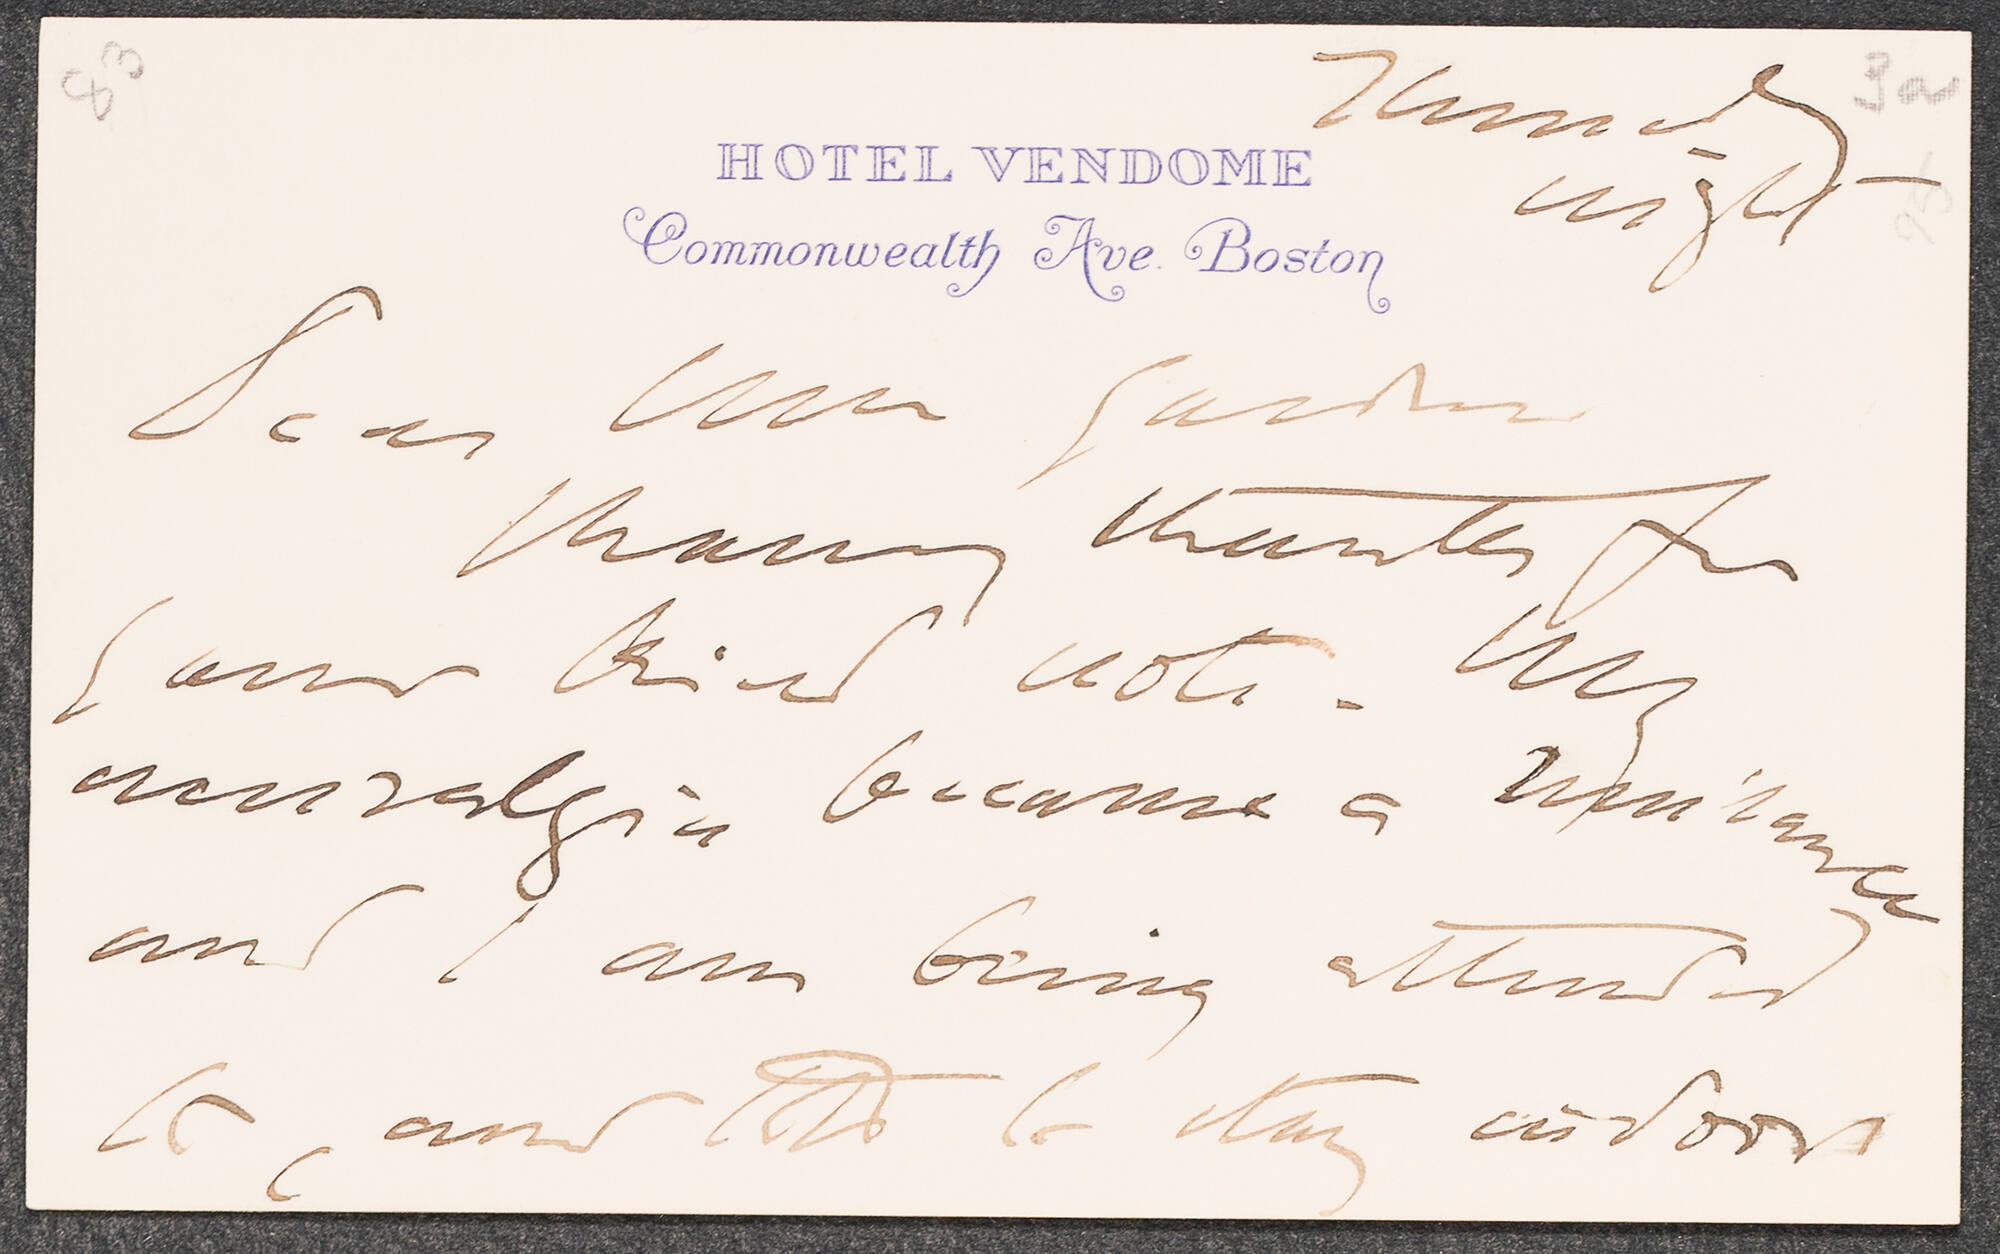 83
Sunday
night —
HOTEL VENDOME
Commonwealth Ave. Boston
Dear Mrs Gardner
Many thanks for
your kind note - My
neuralgia became a nuisance
and I am being attended
to, and told to stay indoors